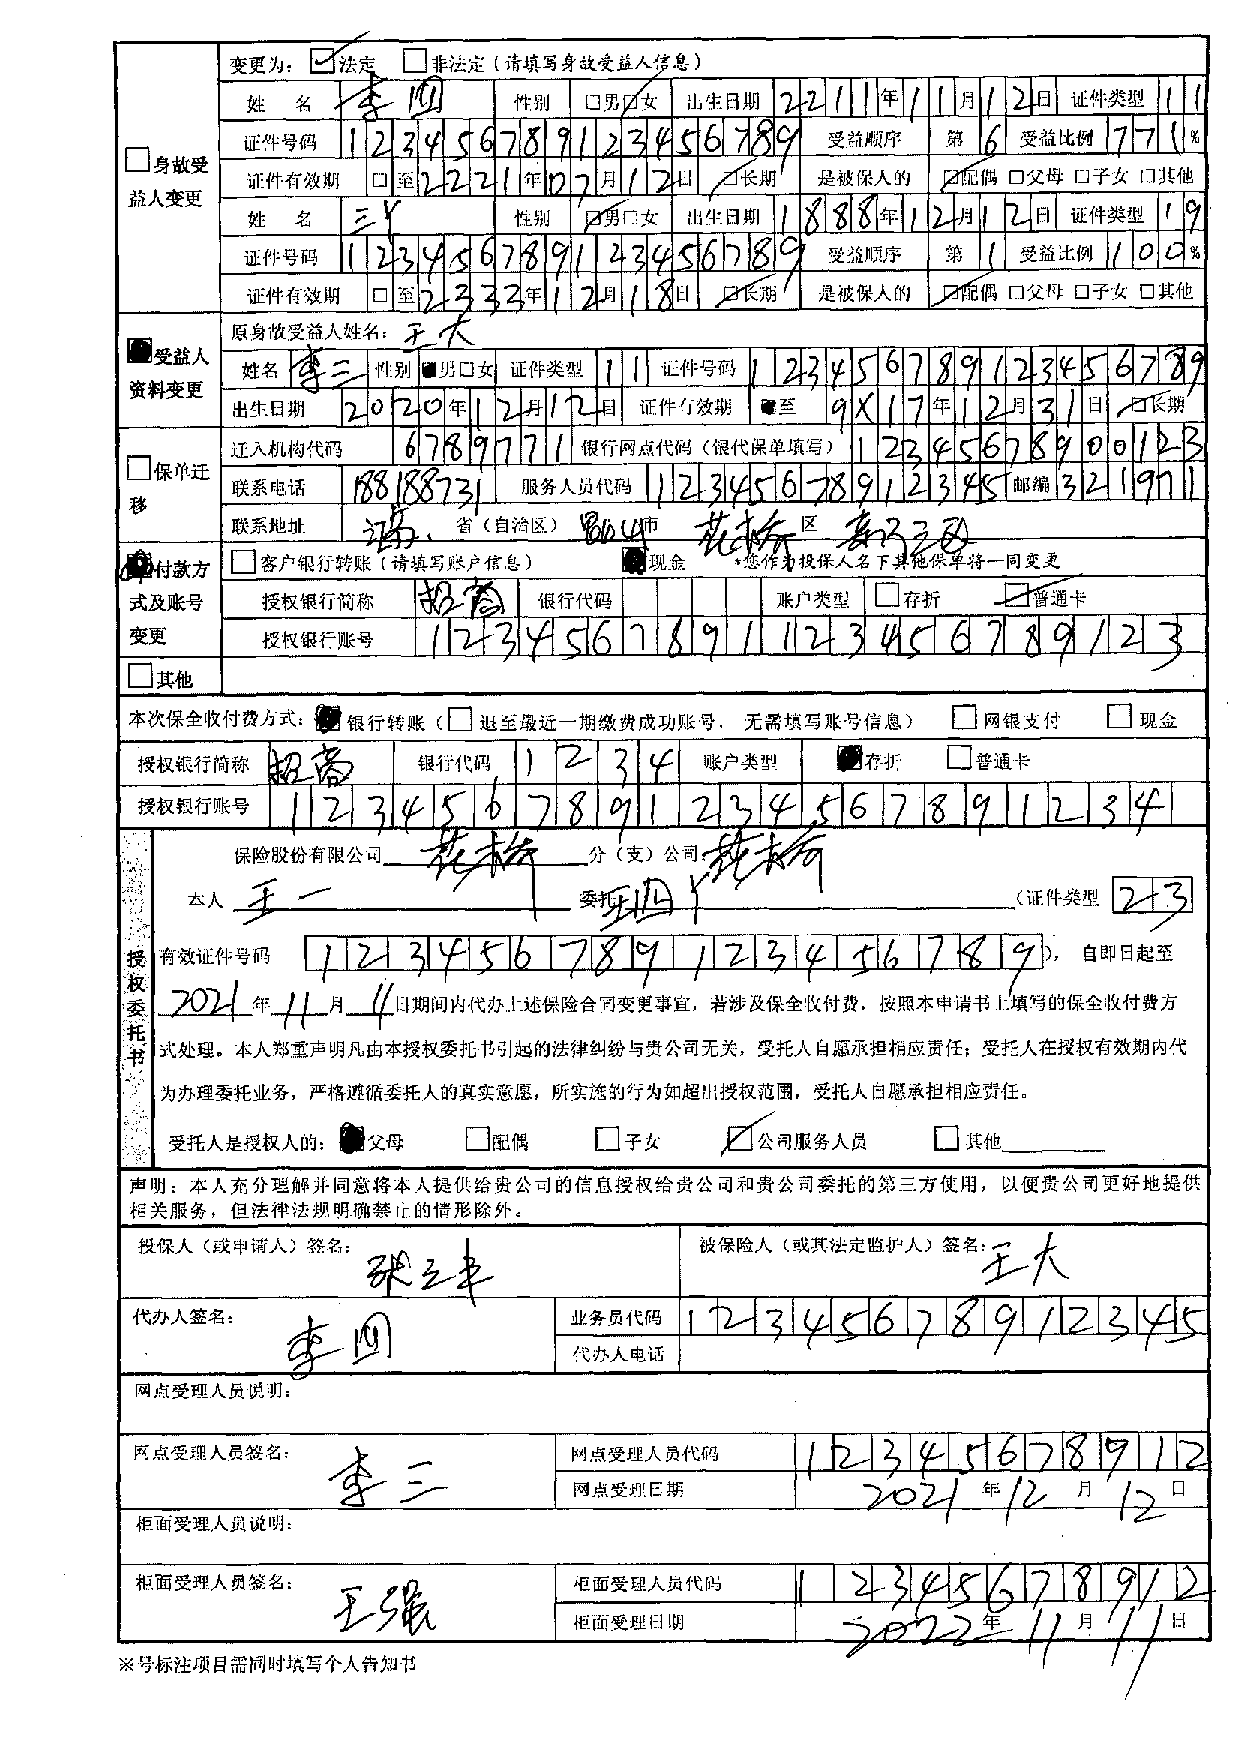 变更为: 法定 非法定(请填写身故受益人信息)
姓 名 李四 性别 男 女 出生日期 2211年11月12日 证件类型 11
身故受益人变更
证件号码 123456789123456789 受益顺序 第 6 受益比例 771%
证件有效期 至2221年07月12日 长期 是被保人的 配偶 父母 子女 其他
姓 名 三丫 性别 男 女 出生日期 1888年12月12日 证件类型 19
证件号码 123456789123456789 受益顺序 第 1 受益比例 100%
证件有效期 至2333年12月18日 长期 是被保人的 配偶 父母 子女 其他
受益人资料变更
原身故受益人姓名: 王大
姓名 李三 性别 男 女 证件类型 11 证件号码 123456789123456789
出生日期 2020年12月12日 证件有效期 至 9X17年12月31日 长期
保单迁移
迁入机构代码 6789771 银行网点代码(银代保单填写) 12345678900123
联系电话 188188731 服务人员代码 12345678912345 邮编 321971
联系地址 省(自治区) 市 花桥 区
付款方式及账号变更
客户银行转账(请填写账户信息) 现金 *您作为投保人名下其他保单将一同变更
授权银行简称 招商 银行代码 账户类型 存折 普通卡
授权银行账号 1234567891123456789123
其他
本次保全收付费方式: 银行转账( 退至最近一期缴费成功账号, 无需填写账号信息) 网银支付 现金
授权银行简称 招商 银行代码 1234 账户类型 存折 普通卡
授权银行账号 1234567891234567891234
授权委托书
保险股份有限公司 花桥 分(支)公司: 花桥
本人 王一 委托 王四丫 (证件类型 23
有效证件号码 123456789123456789), 自即日起至
2021年11月11日期间内代办上述保险合同变更事宜, 若涉及保全收付费, 按照本申请书上填写的保全收付费方
式处理。本人郑重声明凡由本授权委托书引起的法律纠纷与贵公司无关, 受托人自愿承担相应责任; 受托人在授权有效期内代
为办理委托业务, 严格遵循委托人的真实意愿, 所实施的行为如超出授权范围, 受托人自愿承担相应责任。
受托人是授权人的: 父母 配偶 子女 公司服务人员 其他
声明: 本人充分理解并同意将本人提供给贵公司的信息授权给贵公司和贵公司委托的第三方使用, 以便贵公司更好地提供
相关服务, 但法律法规明确禁止的情形除外。
投保人(或申请人)签名: 张三丰 被保险人(或其法定监护人)签名: 王大
代办人签名: 李四 业务员代码 12345678912345
代办人电话
网点受理人员说明:
网点受理人员签名: 李三 网点受理人员代码 12345678912
网点受理日期 2021年12月12日
柜面受理人员说明:
柜面受理人员签名: 王强 柜面受理人员代码 12345678912
柜面受理日期 2022年11月11日
※号标注项目需同时填写个人告知书